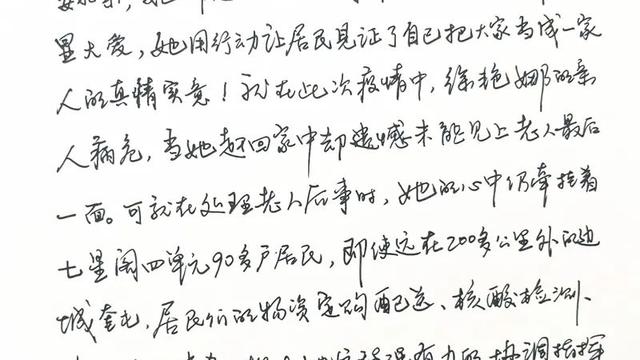 量大爱，她用行动让居民见证了自己把大家当成一家
人的真情实意！就在此次疫情中，徐艳娜的亲
人病危，当她赶回家中却遗憾未能见上老人最后
一面。可就在处理老人后事时，她的心中仍牵挂着
七星阁四单元90多户居民，即使远在200多公里外的边
城奎屯，居民们的物资定购配送、核酸检测、
协调指挥